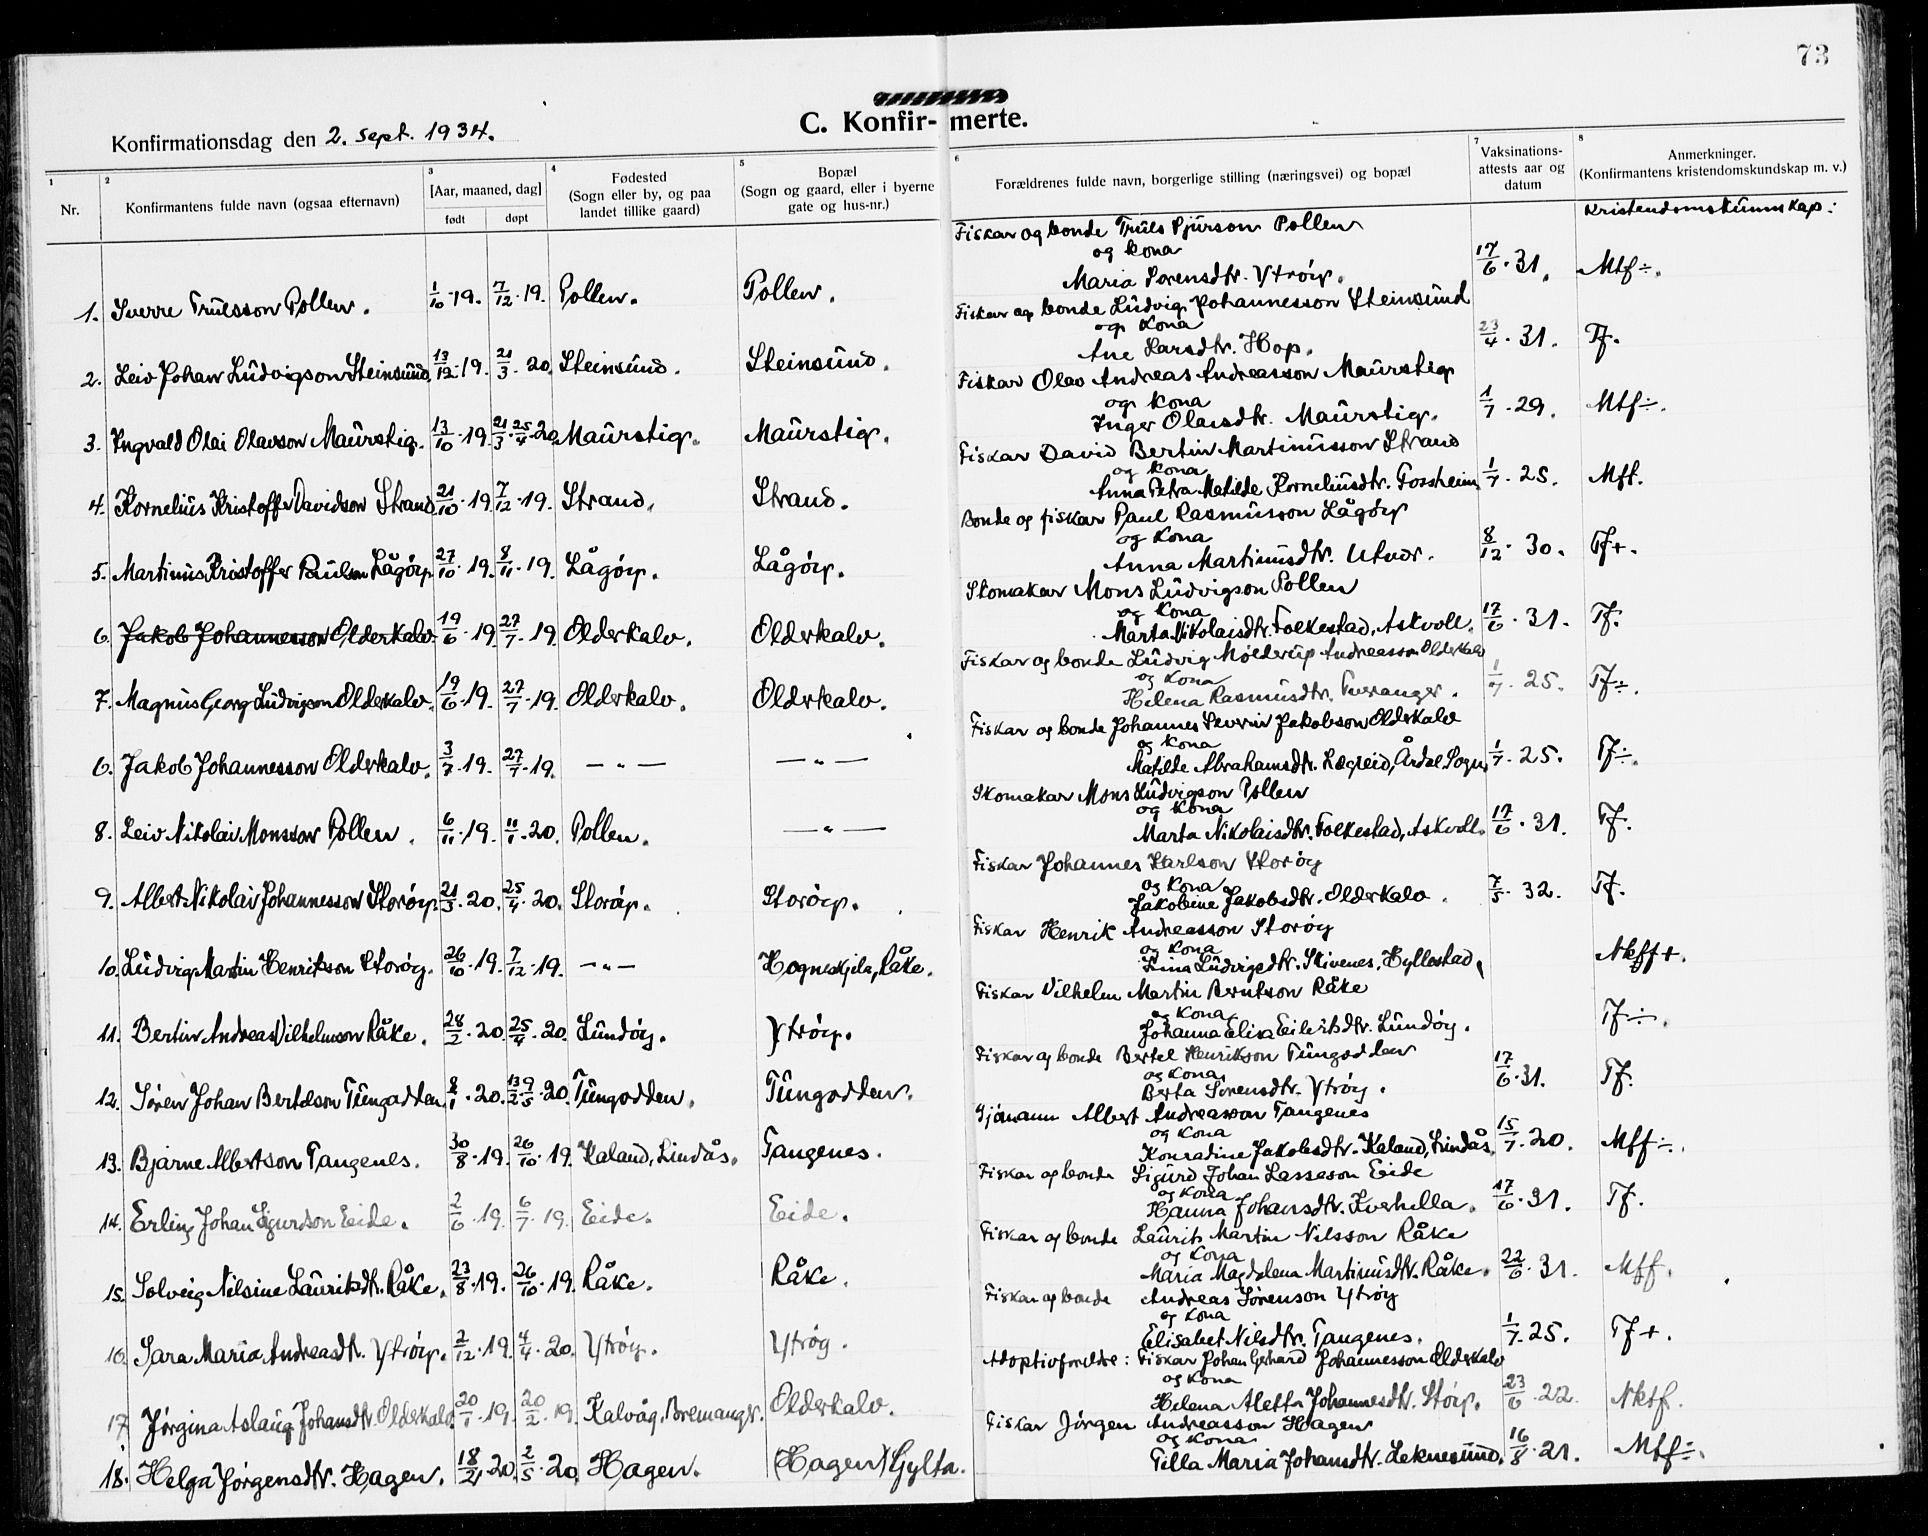 73
C. Konfir- merte.
Konfirmationsdag den 2. sept. 1934.
1 Nr.
2 Konfirmantens fulde navn (ogsaa efternavn)
3 [Aar, maaned, dag] født døpt
4 Fødested (Sogn eller by, og paa landet tillike gaard)
5 Bopæl (Sogn og gaard, eller i byerne gate og hus-nr.)
6 Forældrenes fulde navn, borgerlige stilling (næringsvei) og bopæl
7 Vaksinations-attests aar og datum
8 Anmerkninger. (Konfirmantens kristendomskundskap m. v.)
Kristendomskunnskap:
Fiskar og bonde Truls Sjurson Pollen
og kona
Maria Sorensdtr. Ytröy. 17/6·31. Mtf÷.
1. Sverre Trulsson Pollen. 1/10·19. 7/12·19. Pollen. Pollen.
Fiskar og bonde Ludvig Johannesson Steinsund
og kona
Ane Larsdtr. Hop. 23/4·31. Tf.
2. Leiv Johan Ludvigson Steinsund. 13/12·19. 21/3·20. Steinsund. Steinsund.
Fiskar Olav Andreas Andreasson Maurstig
og kona
Inger Olaisdtr. Maurstig. 1/7·29. Mtf÷.
3. Ingvald Olai Olavson Maurstig. 13/10·19. 21/3·25/4·20. Maurstig. Maurstig.
Fiskar David Bertin Martinusson Strand
og kona
Anna Petra Matilde Korneliusdtr. Fossheim. 1/7·25. Mff.
4. Kornelius Kristoffer Davidson Strand. 21/10·19. 7/12·19. Strand. Strand.
Bonde og fiskar Paul Rasmusson Lågöy
og kona
Anna Martinusdtr. Utvær. 8/12·30. Tf+.
5. Martinus Kristoffer Paulson Lågöy. 27/10·19. 8/11·19. Lågöy. Lågöy.
Skomakar Mons Ludvigson Pollen
og kona
Marta Nikolaisdtr. Folkestad, Askvoll. 17/6·31. Tf.
6. Jakob Johannesson Olderkalv 19/6·19. 27/7·19. Olderkalv. Olderkalv.
Fiskar og bonde Ludvig Mølderup Andreasson Olderkalv
og kona
Helena Rasmusdtr. Tveranger. 1/7·25. Tf÷.
7. Magnus Georg Ludvigson Olderkalv. 19/6·19. 27/7·19. Olderkalv. Olderkalv.
Fiskar og bonde Johannes Severin Jakobson Olderkalv
og kona
Matilde Abrahamsdtr. Lægreid, Årdal Sogn. 1/7·25. Tf÷.
6. Jakob Johannesson Olderkalv. 3/7·19. 27/7·19. — " — — " —
Skomakar Mons Ludvigson Pollen
og kona
Marta Nikolaisdtr. Folkestad, Askvoll. 17/6·31. Tf.
8. Leiv Nikolai Monsson Pollen. 6/11·19. 11/1·20. Pollen. — " —
Fiskar Johannes Karlson Storöy
og kona
Jakobine Jakobsdtr. Olderkalv. 7/5·32. Tf.
9. Albert Nikolai Johannesson Storöy. 21/3·20. 25/4·20. Storöy. Storöy.
Fiskar Henrik Andreasson Storöy
og kona
Ludvigsdtr. Skivenes, Hyllestad. Nkff+.
10. Ludvig Martin Henrikson Storöy. 26/10·19. 7/12·19. — " — Hogneskjela, Råke.
Fiskar Vilhelm Martin Berntson Råke
og kona
Johanna Elisa Eilertsdtr. Lundöy. Tf÷.
11. Bertin Andreas Vilhelmson Råke. 28/2·20. 25/4·20. Lundöy. Ytröy.
Fiskar og bonde Bertel Henrikson Tungodden
og kona
Berta Sorensdtr. Ytröy. 17/6·31. Tf.
12. Sören Johan Bertelson Tungodden. 8/1·20. 13/2·9/5·20. Tungodden. Tungodden.
Sjömann Albert Andreasson Tangenes
og kona
Konradine Jakobsdtr. Kaland, Lindås. 15/7·20. Mff÷.
13. Bjarne Albertson Tangenes. 30/8·19. 26/10·19. Kaland, Lindås. Tangenes.
Fiskar og bonde Sigurd Johan Lasseson Eide
og kona
Hanna Johansdtr. Kverhella. 17/6·31. Tf.
14. Erling Johan Sigurdson Eide. 2/6·19. 6/7·19. Eide. Eide.
Fiskar og bonde Laurits Martin Nilsson Råke
og kona
Maria Magdalena Martinusdtr. Råke. 22/6·31. Mff.
15. Solveig Nilsine Lauritsdtr. Råke. 23/8·19. 26/10·19. Råke. Råke.
Fiskar og bonde Andreas Sörenson Ytröy
og kona
Elisabet Nilsdtr. Tangenes. 1/7·25. Tf+.
16. Sara Maria Andreasdtr. Ytröy. 2/12·19. 4/4·20. Ytröy. Ytröy.
Adoptivforeldre: Fiskar Johan Gerhard Johannesson Olderkalv
og kona
Helena Aletta Johannesdtr. Storöy. 23/6·22. Nktf.
17. Jörgina Aslaug Johansdtr. Olderkalv. 20/1·19. 20/2·19. Kalvåg, Bremanger. Olderkalv.
Fiskar Jörgen Andreasson Hagen
og kona
Tilla Maria Johansdtr. Leknesund. 16/8·21. Mff÷.
18. Helga Jörgensdtr. Hagen. 18/2·20. 2/5·20. Hagen. (Hagen) Gylta.